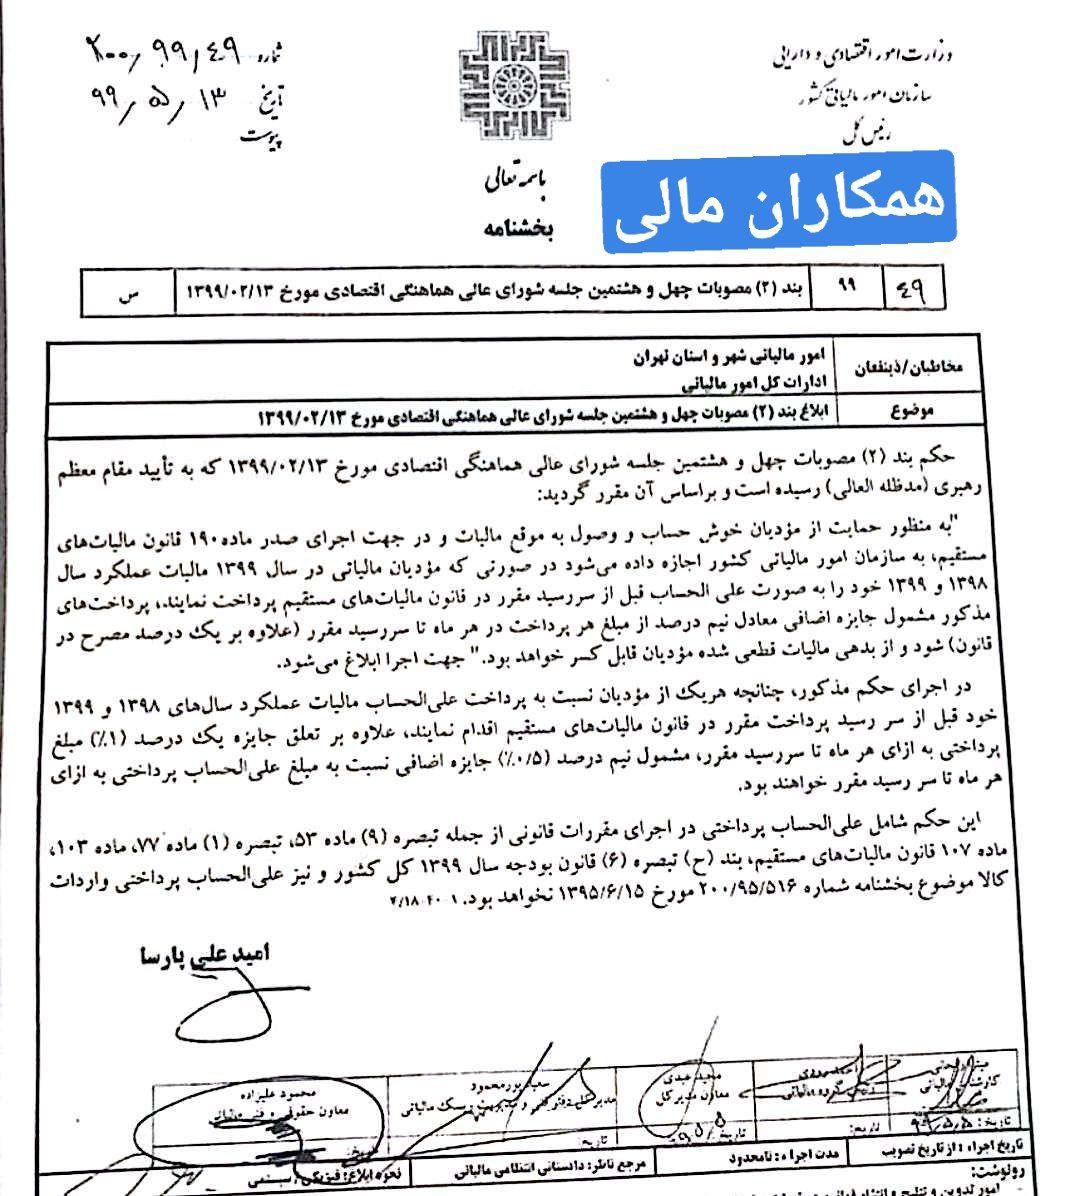 وزارت امور اقتصادی و دارایی
سازمان امور مالیاتی کشور
رئیس کل
شماره ۲۰۰/۹۹/۴۹
تاریخ ۹۹/۵/۱۳
پیوست
باسمه تعالی
بخشنامه
همکاران مالی
۴۹ ۹۹ بند (۲) مصوبات چهل و هشتمین جلسه شورای عالی هماهنگی اقتصادی مورخ ۱۳۹۹/۰۲/۱۳ س
مخاطبان/ذینفعان
امور مالیاتی شهر و استان تهران
ادارات کل امور مالیاتی
موضوع ابلاغ بند (۲) مصوبات چهل و هشتمین جلسه شورای عالی هماهنگی اقتصادی مورخ ۱۳۹۹/۰۲/۱۳
حکم بند (۲) مصوبات چهل و هشتمین جلسه شورای عالی هماهنگی اقتصادی مورخ ۱۳۹۹/۰۲/۱۳ که به تأیید مقام معظم
رهبری (مدظله العالی) رسیده است و براساس آن مقرر گردید:
"به منظور حمایت از مؤدیان خوش حساب و وصول به موقع مالیات و در جهت اجرای صدر ماده ۱۹۰ قانون مالیات‌های
مستقیم، به سازمان امور مالیاتی کشور اجازه داده می‌شود در صورتی که مؤدیان مالیاتی در سال ۱۳۹۹ مالیات عملکرد سال
۱۳۹۸ و ۱۳۹۹ خود را به صورت علی الحساب قبل از سررسید مقرر در قانون مالیات‌های مستقیم پرداخت نمایند، پرداخت‌های
مذکور مشمول جایزه اضافی معادل نیم درصد از مبلغ هر پرداخت در هر ماه تا سررسید مقرر (علاوه بر یک درصد مصرح در
قانون) شود و از بدهی مالیات قطعی شده مؤدیان قابل کسر خواهد بود." جهت اجرا ابلاغ می‌شود.
در اجرای حکم مذکور، چنانچه هریک از مؤدیان نسبت به پرداخت علی‌الحساب مالیات عملکرد سال‌های ۱۳۹۸ و ۱۳۹۹
خود قبل از سر رسید پرداخت مقرر در قانون مالیات‌های مستقیم اقدام نمایند، علاوه بر تعلق جایزه یک درصد (۱٪) مبلغ
پرداختی به ازای هر ماه تا سررسید مقرر، مشمول نیم درصد (۰/۵٪) جایزه اضافی نسبت به مبلغ علی‌الحساب پرداختی به ازای
هر ماه تا سر رسید مقرر خواهند بود.
این حکم شامل علی‌الحساب پرداختی در اجرای مقررات قانونی از جمله تبصره (۹) ماده ۵۳، تبصره (۱) ماده ۷۷، ماده ۱۰۳،
ماده ۱۰۷ قانون مالیات‌های مستقیم، بند (ح) تبصره (۶) قانون بودجه سال ۱۳۹۹ کل کشور و نیز علی‌الحساب پرداختی واردات
کالا موضوع بخشنامه شماره ۲۰۰/۹۵/۵۱۶ مورخ ۱۳۹۵/۶/۱۵ نخواهد بود.
امید علی پارسا
مجید عبدی
معاون مدیرکل
تاریخ:
محمود علیزاده
معاون حقوقی و فنی مالیاتی
تاریخ:
تاریخ اجراء: از تاریخ تصویب مدت اجراء: نامحدود مرجع ناظر: دادستانی انتظامی مالیاتی نحوه ابلاغ: فیزیکی/سیستمی
رونوشت: